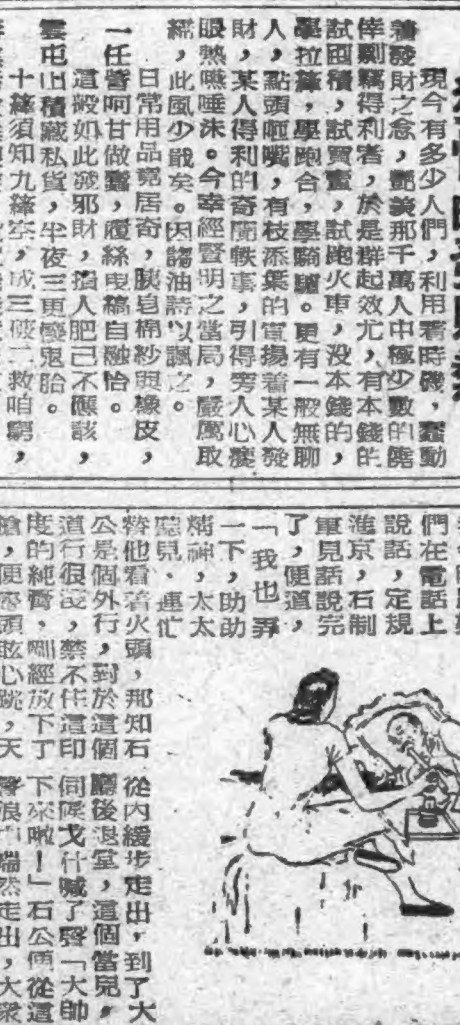 現今有多少人們，利用着時機，蠢動
着發財之念，艷羨那千萬人中極少數的僥
倖剽竊得利者，於是群起效尤，有本錢的
試囤積，試買賣，試跑火車，沒本錢的，
學拉縴，學跑合，學騎驢。更有一般無聊
人，點頭咂嘴，有枝添葉的宣揚着某人發
財，某人得利的奇聞軼事，引得旁人心癢
眼熱嚥唾沫。今幸經賢明之當局，嚴厲取
締，此風少戢矣。因謅油詩以諷之。
日常用品竟居奇，胰皂棉紗與橡皮，
一任訾呵甘做蠶，履絲曳縞自融怡。
這般如此發邪財，損人肥己不應該，
雲屯山積藏私貨，半夜三更變鬼胎。
十縴須知九縴空，成三破二救咱窮，
們在電話上
說話，定規
進京，石制
軍見話說完
了，便道，
「我也弄
一下，助助
精神，太太
聽見、連忙
替他看着火頭，那知石
公是個外行，對於這個
道行很淺，禁不住這印
度的純膏，剛經放下了
槍，便覺頭眩心跳，天
從內緩步走出，到了大
廳後退堂，這個當兒，
伺候戈什喊了聲「大帥
下來啦！」石公便從這
聲浪中端然走出，大衆